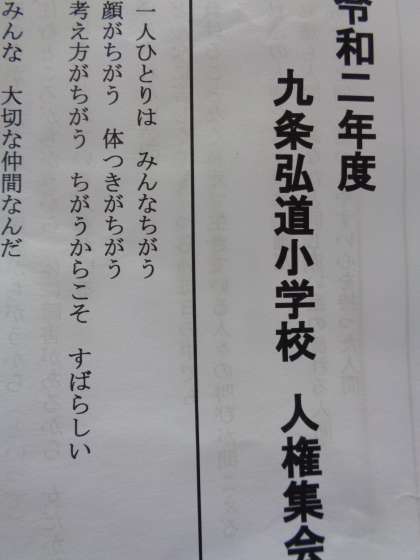 令和二年度
九条弘道小学校 人権集会
一人ひとりは みんなちがう
顔がちがう 体つきがちがう
考え方がちがう ちがうからこそ すばらしい
みんな 大切な仲間なんだ